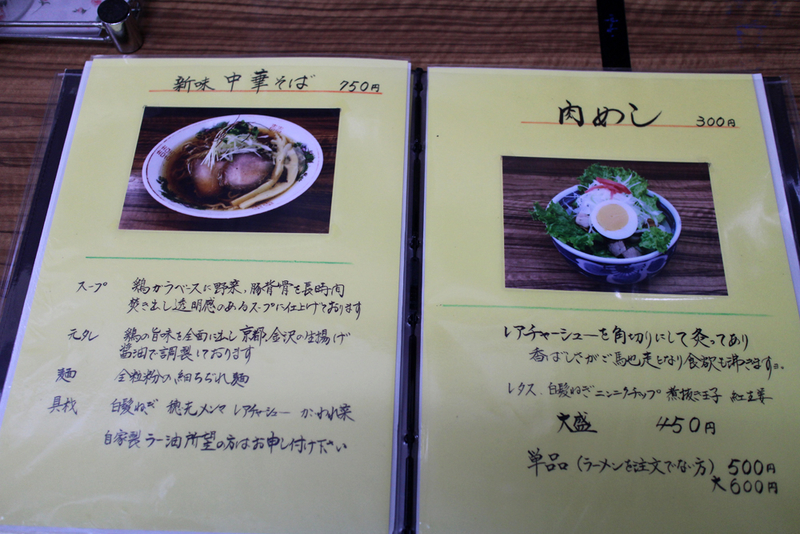 新味 中華そば 750円
スープ 鶏ガラベースに野菜、豚背骨を長時間
焚き出し透明感のあるスープに仕上げております
元タレ 鶏の旨味を全面に出し京都、金沢の生揚げ
醤油で調製しております
麺 全粒粉の細ちぢれ麺
具材 白髪ねぎ 穂先メンマ レアチャーシュー かいわれ菜
自家製ラー油所望の方はお申し付け下さい
肉めし 300円
レアチャーシューを角切りにして炙ってあり
香ばしさがご馳走となり食欲も沸きます。
レタス、白髪ねぎ ニンニクチップ 煮抜き玉子 紅生姜
大盛 450円
単品(ラーメンを注文でない方) 500円
大600円